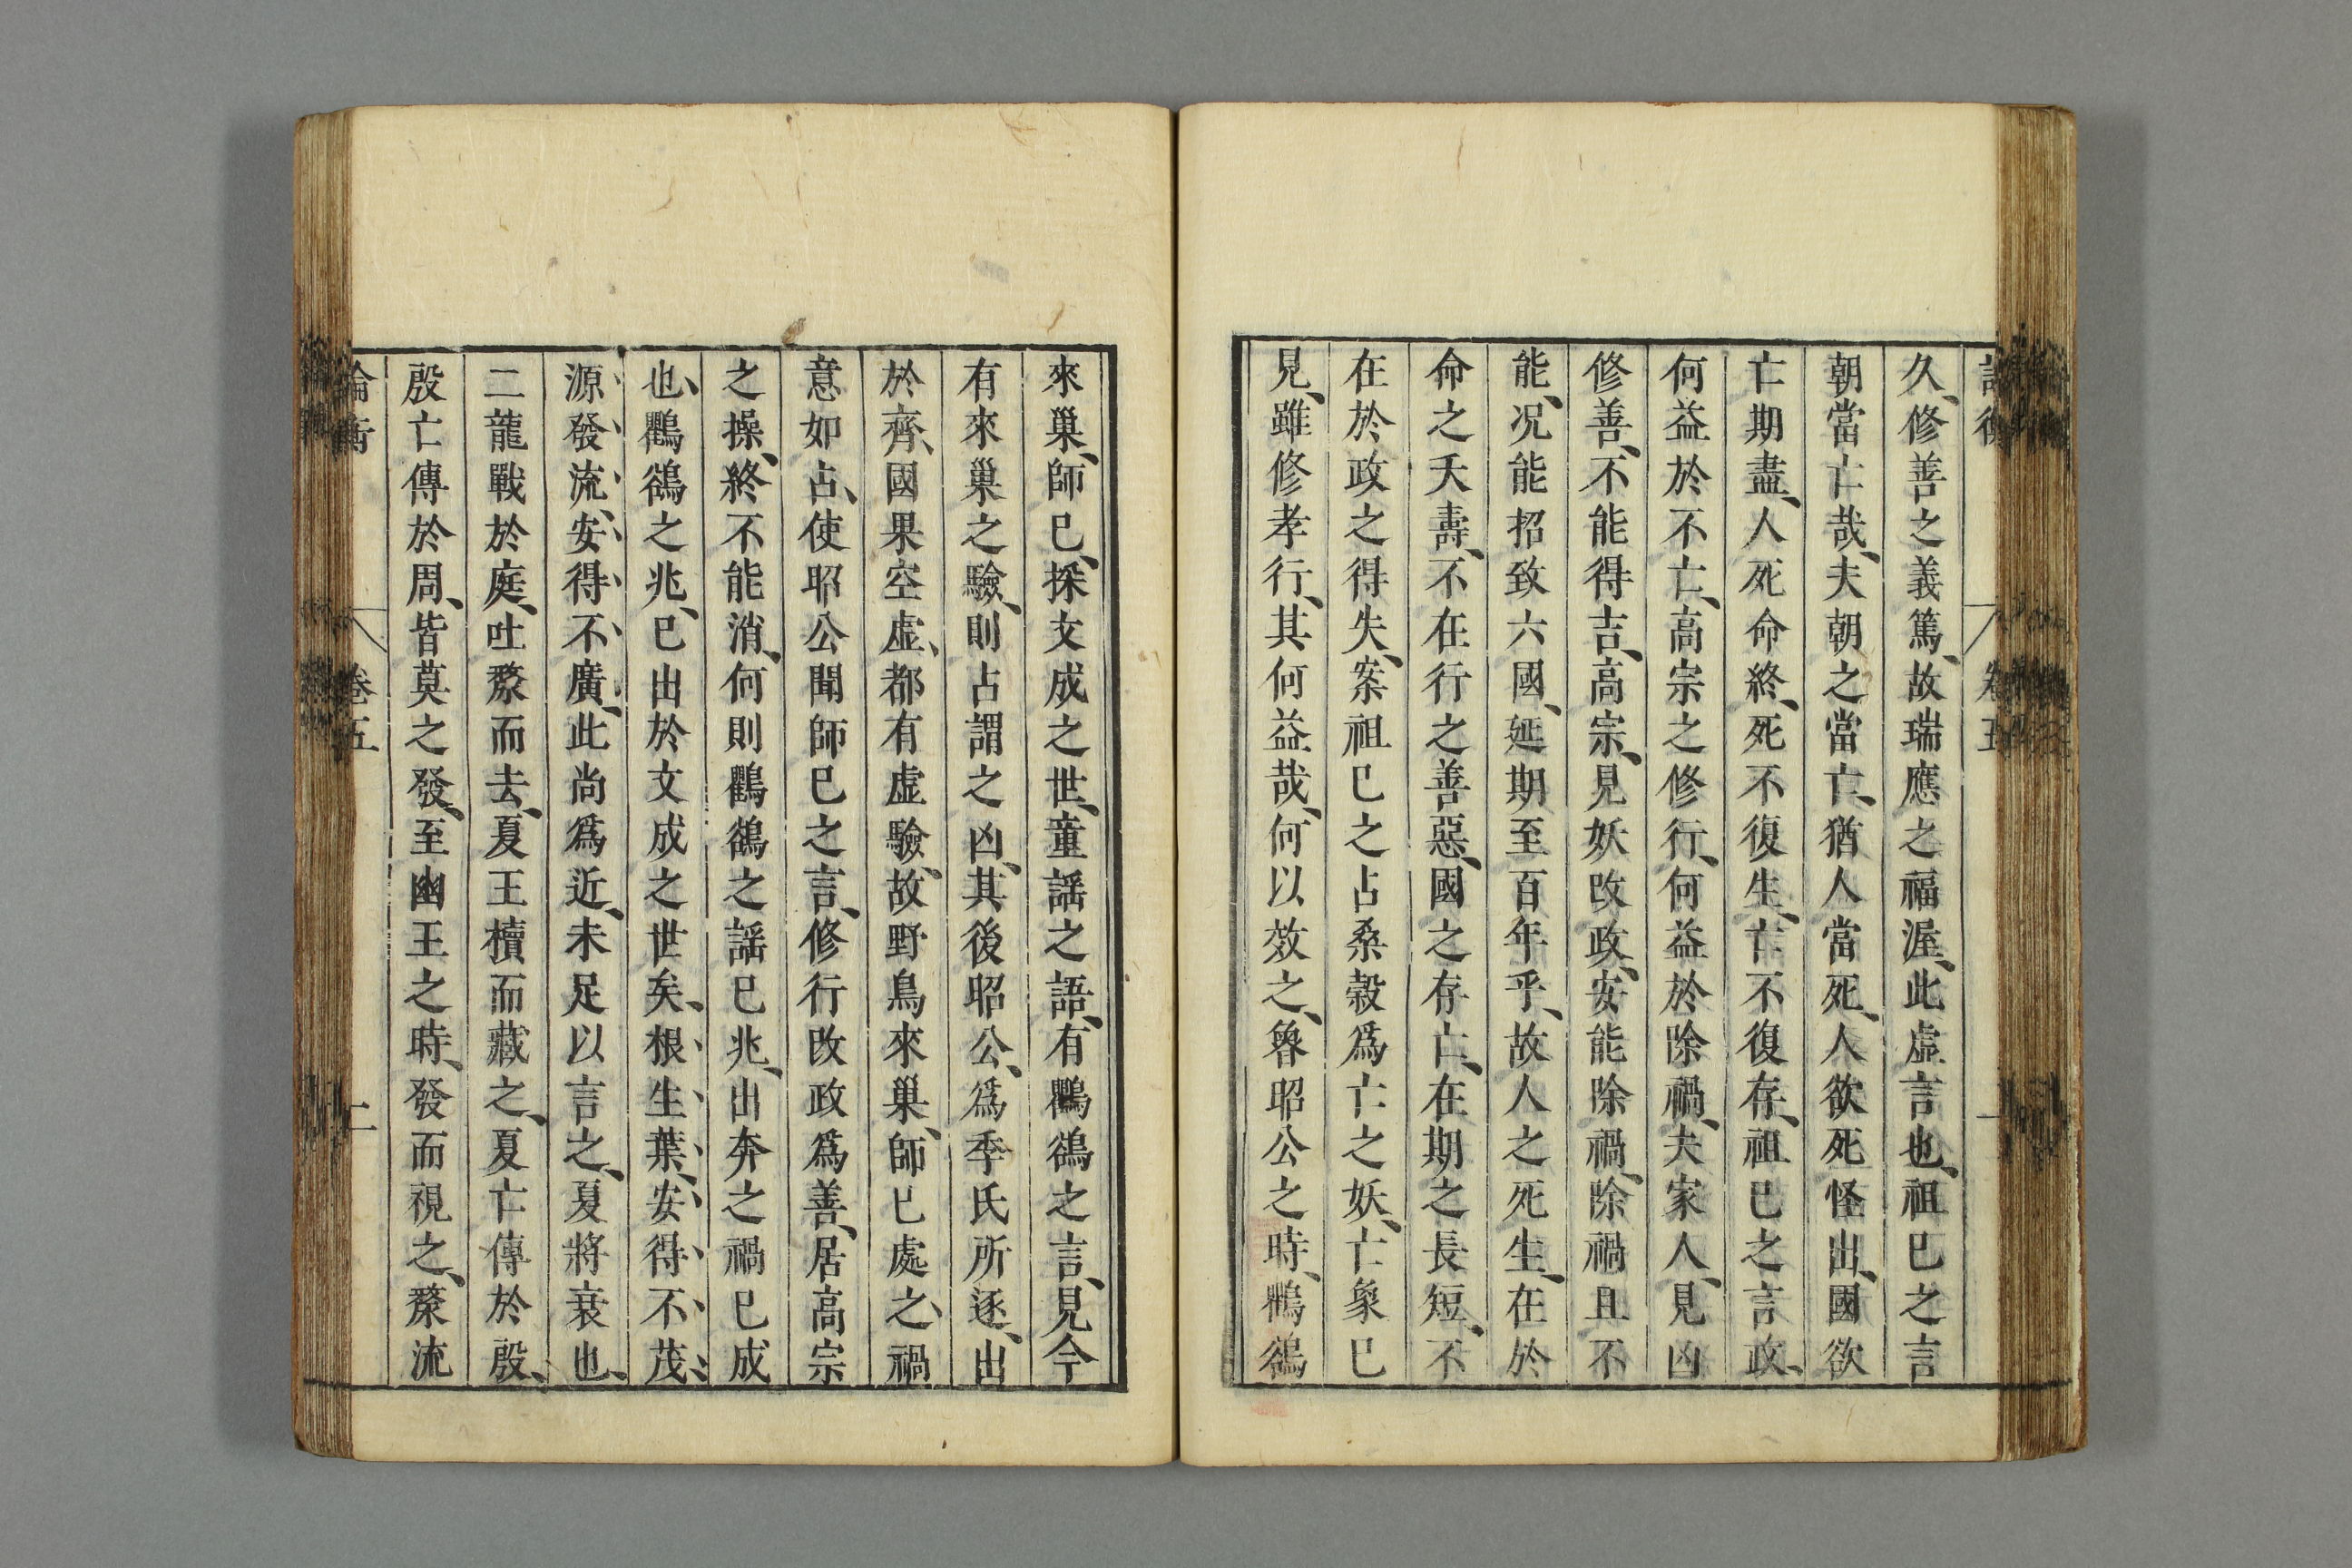 久、修善之義篤、故瑞應之福渥、此虛言也、祖巳之言
朝當亡哉、夫朝之當亡、猶人當死、人欲死怪出、國欲
亡期盡、人死命終、死不復生、亡不復存、祖巳之言政、
何益於不亡、高宗之修行、何益於除禍、夫家人、見凶
修善、不能得吉、高宗、見妖改政、安能除禍、除禍且不
能、况能招致六國、延期至百年乎、故人之死生、在於
命之夭壽、不在行之善惡、國之存亡、在期之長短、不
在於政之得失、案祖巳之占桑榖爲亡之妖、亡象巳
見、雖修孝行、其何益哉、何以效之、魯昭公之時、鸜鵒
來巢、師巳、採文成之世、童謡之語、有鸜鵒之言、見今
有來巢之驗、則占謂之凶、其後昭公、爲季氏所逐、出
於齊、國果空虚、都有虚驗、故野鳥來巢、師巳處之、禍
意如占、使昭公聞師巳之言、修行改政爲善、居高宗
之操、終不能消、何則鸜鵒之謡巳兆、出奔之禍巳成
也、鸜鵒之兆、巳出於文成之世矣、根生葉、安得不茂、
源發流、安得不廣、此尚爲近、未足以言之、夏將衰也、
二龍戰於庭、吐漦而去、夏王櫝而藏之、夏亡傳於殷、
殷亡傳於周、皆莫之發、至幽王之時、發而視之、漦流
論衡 卷五 二